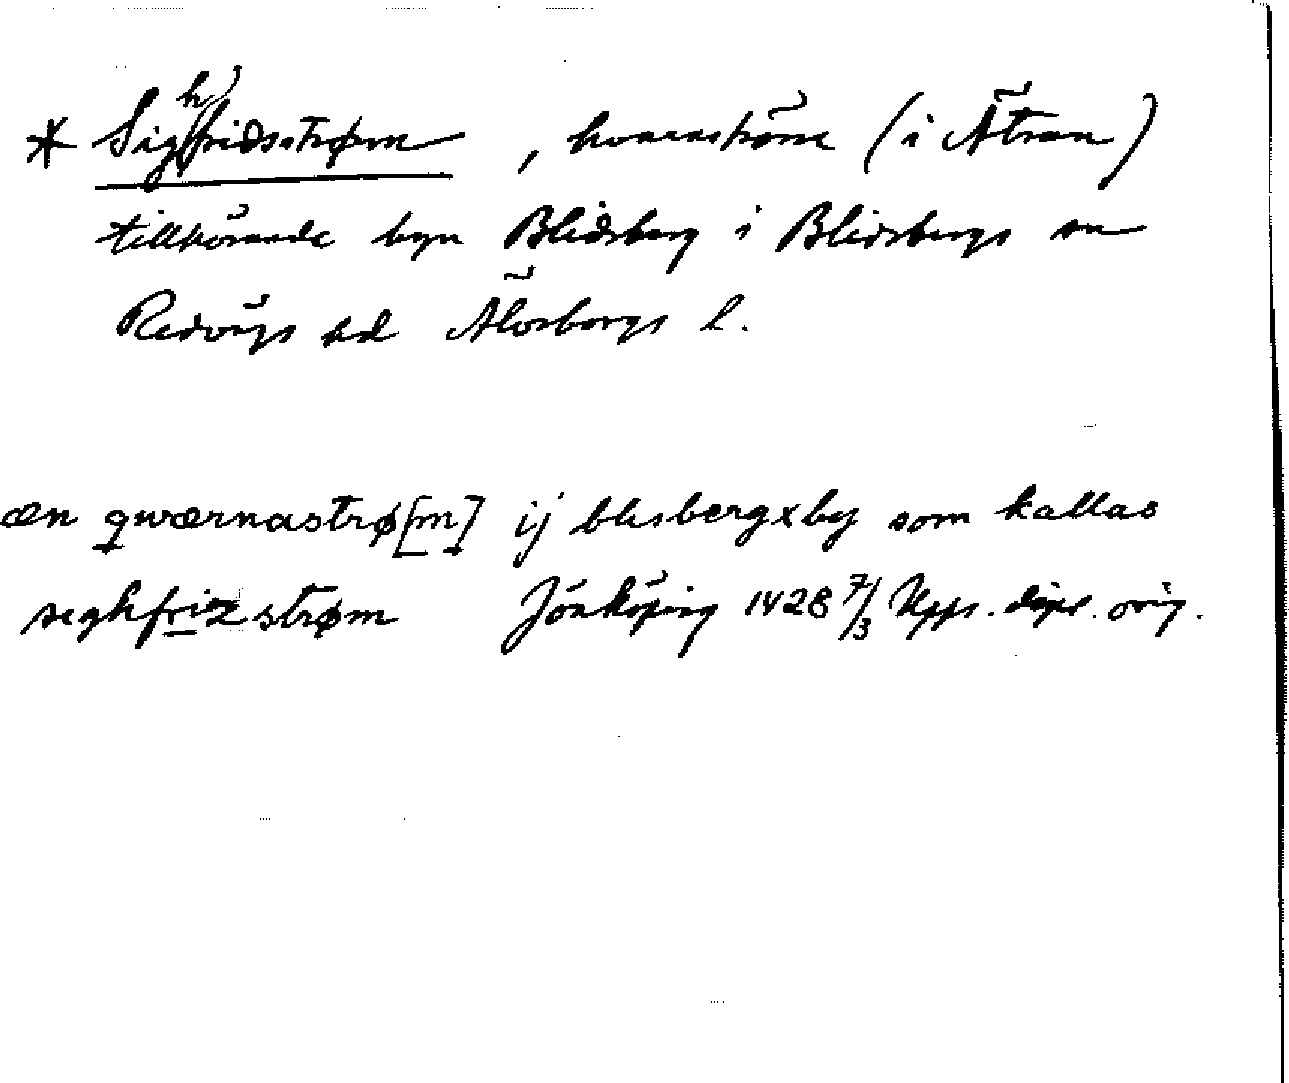 * Sighfridsstrøm , kvarnström (i Ätran)
tillhörande byn Blidsberg i Blidsbergs sn
Redvägs hd Älvsborgs l.
æn qwærnastrø[m] ij blisbergxby som kallas
seghfrizstrøm Jönköping 1428 7/3 Upps. dipl. orig.